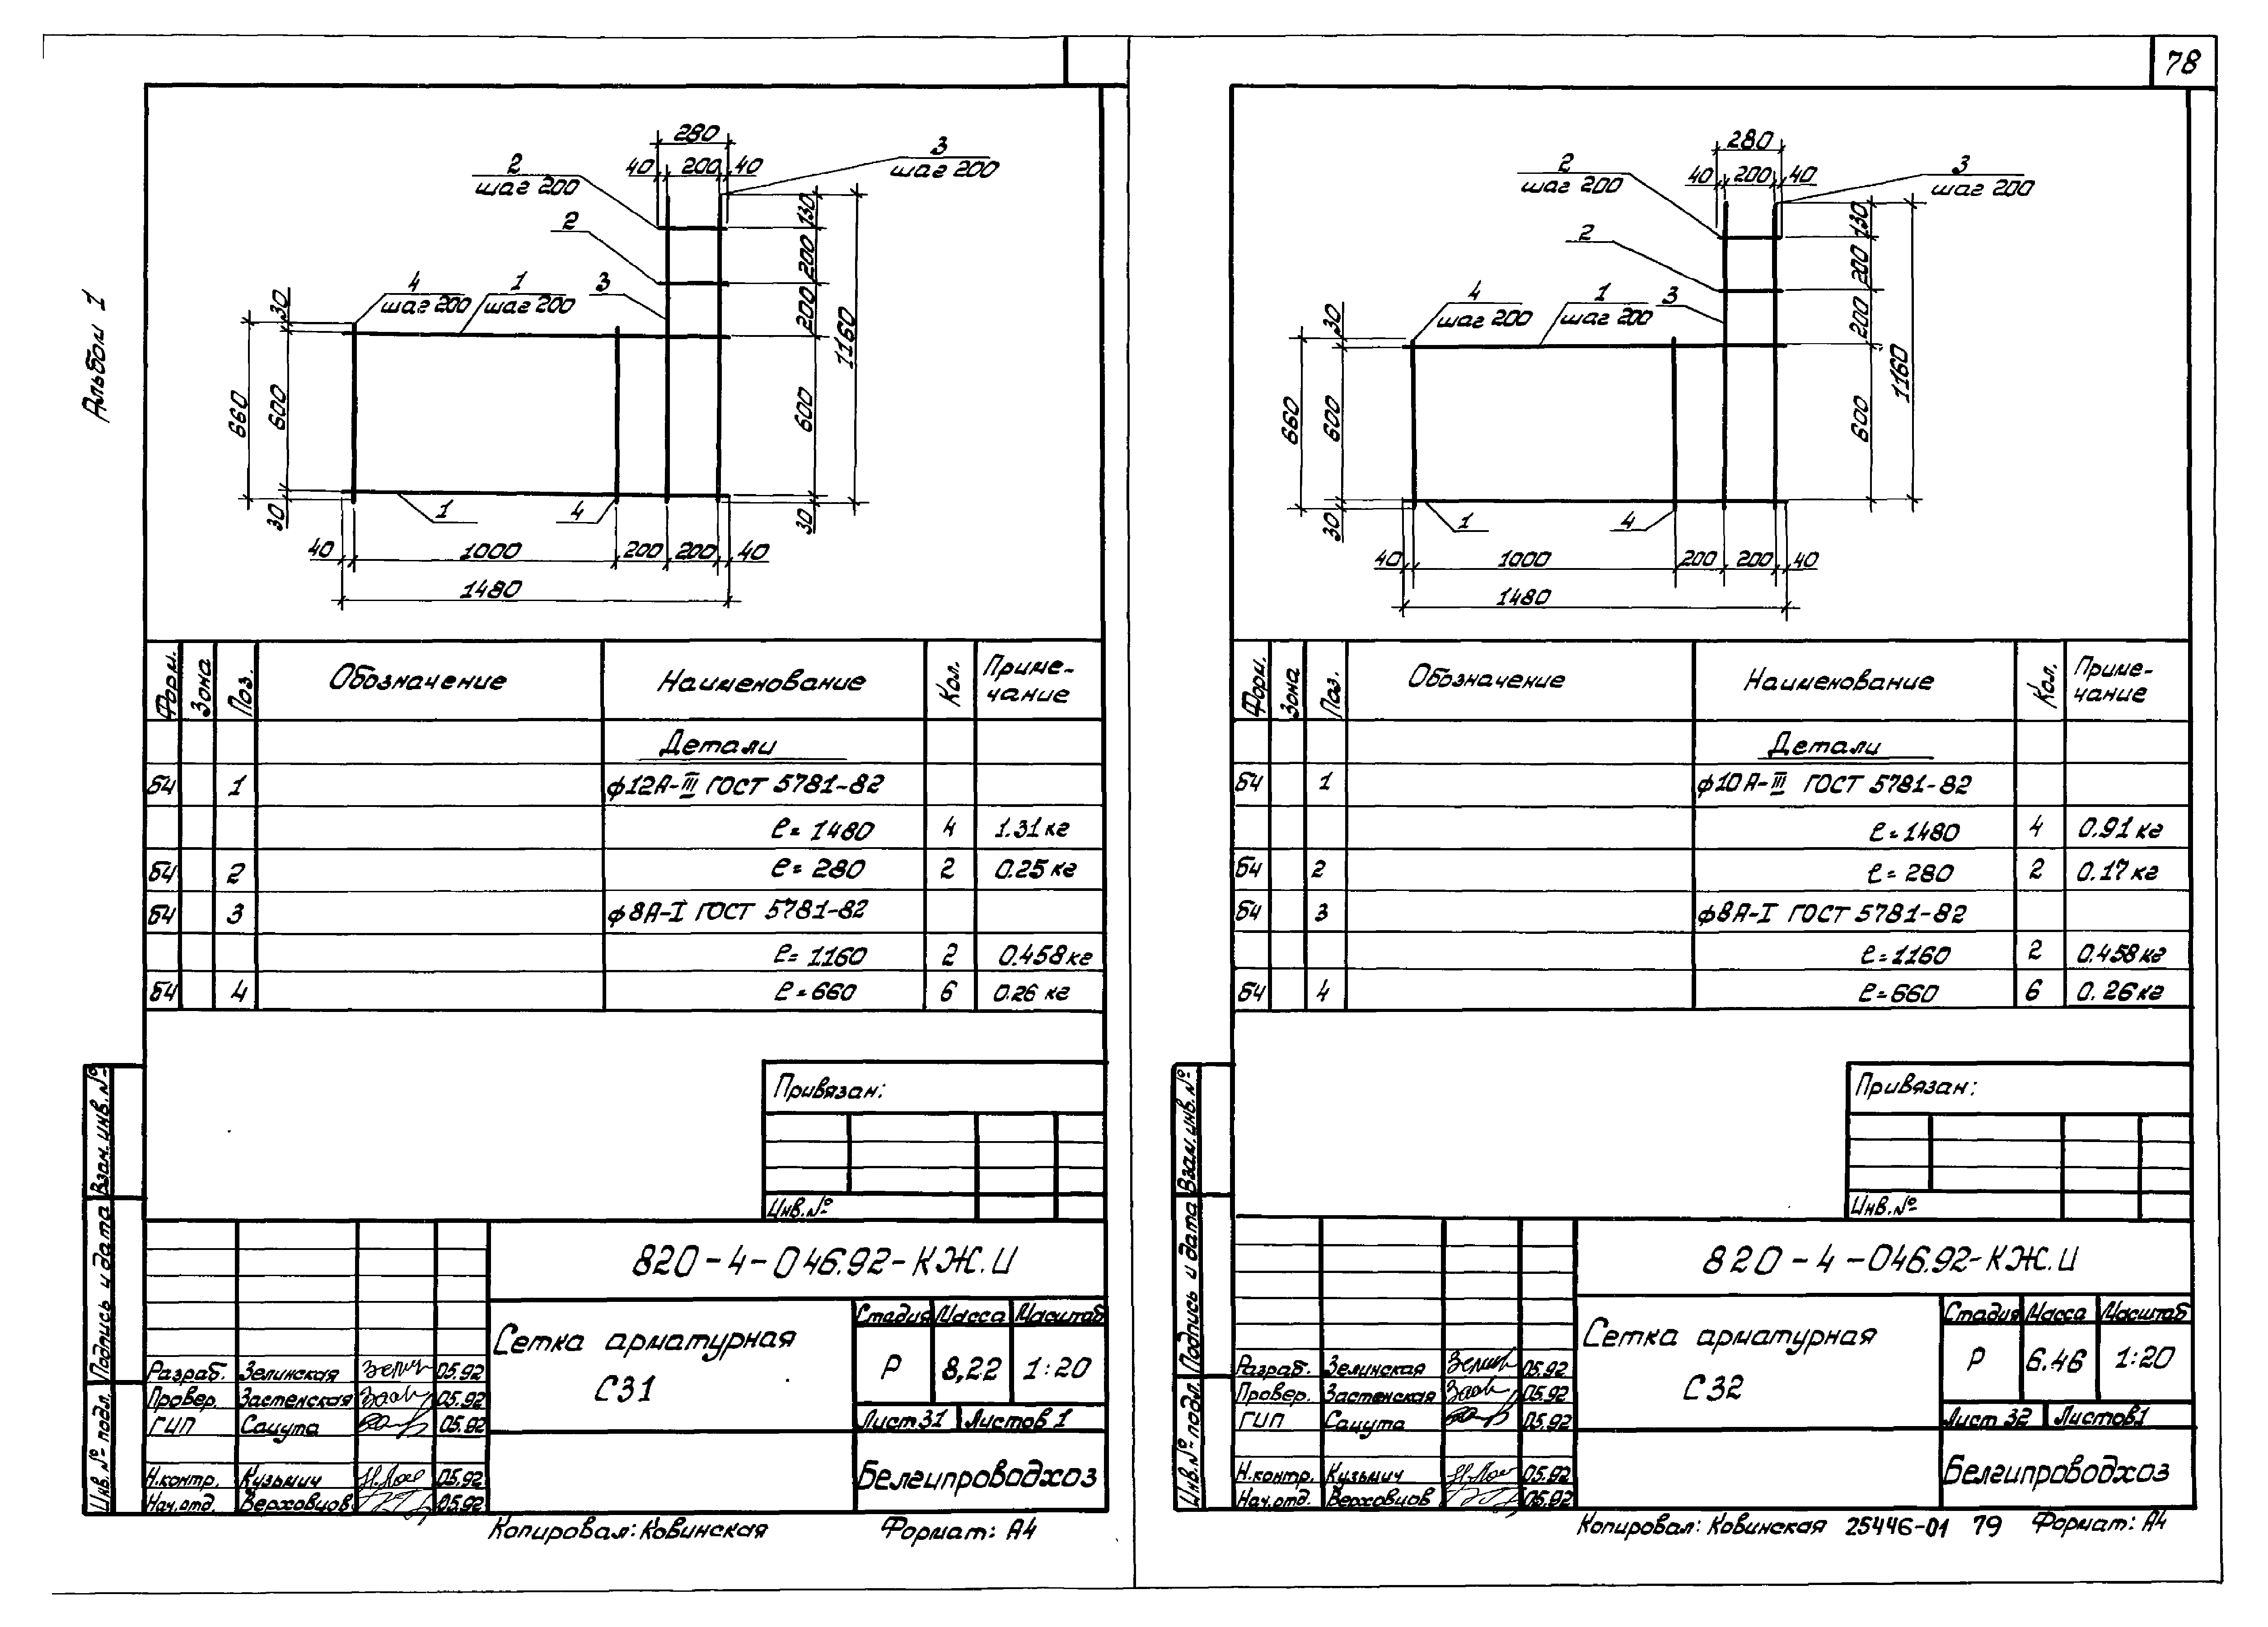 78
Альбом 1
280
40 200 40
2
шаг 200
3
шаг 200
2
4
шаг 200
1
шаг 200
3
130
200
200
600
30
1160
30
600
30
660
1
4
40 1000 200 200 40
1480
Форм. Зона Поз. Обозначение Наименование Кол. Приме-
чание
Детали
БЧ 1 ф12А-III ГОСТ 5781-82
ℓ= 1480 4 1.31кг
БЧ 2 ℓ= 280 2 0.25кг
БЧ 3 ф8А-I ГОСТ 5781-82
ℓ= 1160 2 0.458кг
БЧ 4 ℓ=660 6 0.26 кг
Привязан:
Инв.№
820-4-046.92-КЖ.И
Сетка арматурная
С31
Стадия Масса Масштаб
Р 8,22 1:20
Лист 31 Листов 1
Белгипроводхоз
Разраб. Зелинская 05.92
Провер. Застенская 05.92
ГИП Сацута 05.92
Н.контр. Кузьмич 05.92
Нач.отд. Верховцов 05.92
Взам.инв.№
Подпись и дата
Инв.№ подл.
Копировал: Ковинская Формат: А4
280
40 200 40
2
шаг 200
3
шаг 200
2
4
шаг 200
1
шаг 200
3
130
200
200
600
1160
30
600
30
660
1
4
40 1000 200 200 40
1480
Форм. Зона Поз. Обозначение Наименование Кол. Приме-
чание
Детали
БЧ 1 ф10А-III ГОСТ 5781-82
ℓ=1480 4 0.91кг
БЧ 2 ℓ=280 2 0.17кг
БЧ 3 ф8А-I ГОСТ 5781-82
ℓ=1160 2 0.458кг
БЧ 4 ℓ=660 6 0.26кг
Привязан:
Инв.№
820-4-046.92-КЖ.И
Сетка арматурная
С32
Стадия Масса Масштаб
Р 6.46 1:20
Лист 32 Листов 1
Белгипроводхоз
Разраб. Зелинская 05.92
Провер. Застенская 05.92
ГИП Сацута 05.92
Н.контр. Кузьмич 05.92
Нач.отд. Верховцов 05.92
Взам.инв.№
Подпись и дата
Инв.№ подл.
Копировал: Ковинская 25446-01 79 Формат: А4